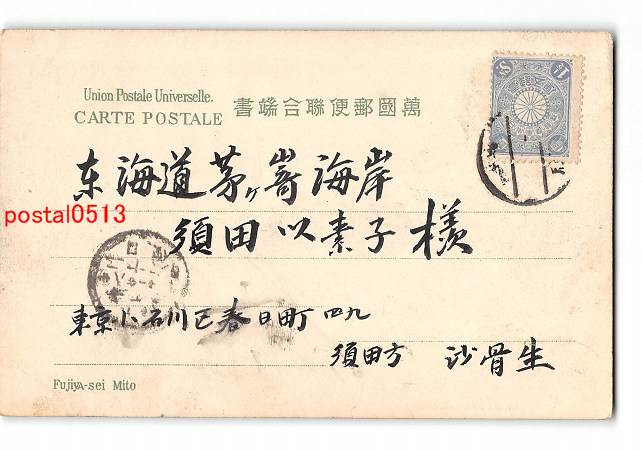 Union Postale Universelle.
CARTE POSTALE
書端合聯便郵國萬
东海道茅ヶ嵜海岸
須田以素子様
東京小石川区春日町四九
須田方 沙骨生
Fujiya-sei Mito
postal0513